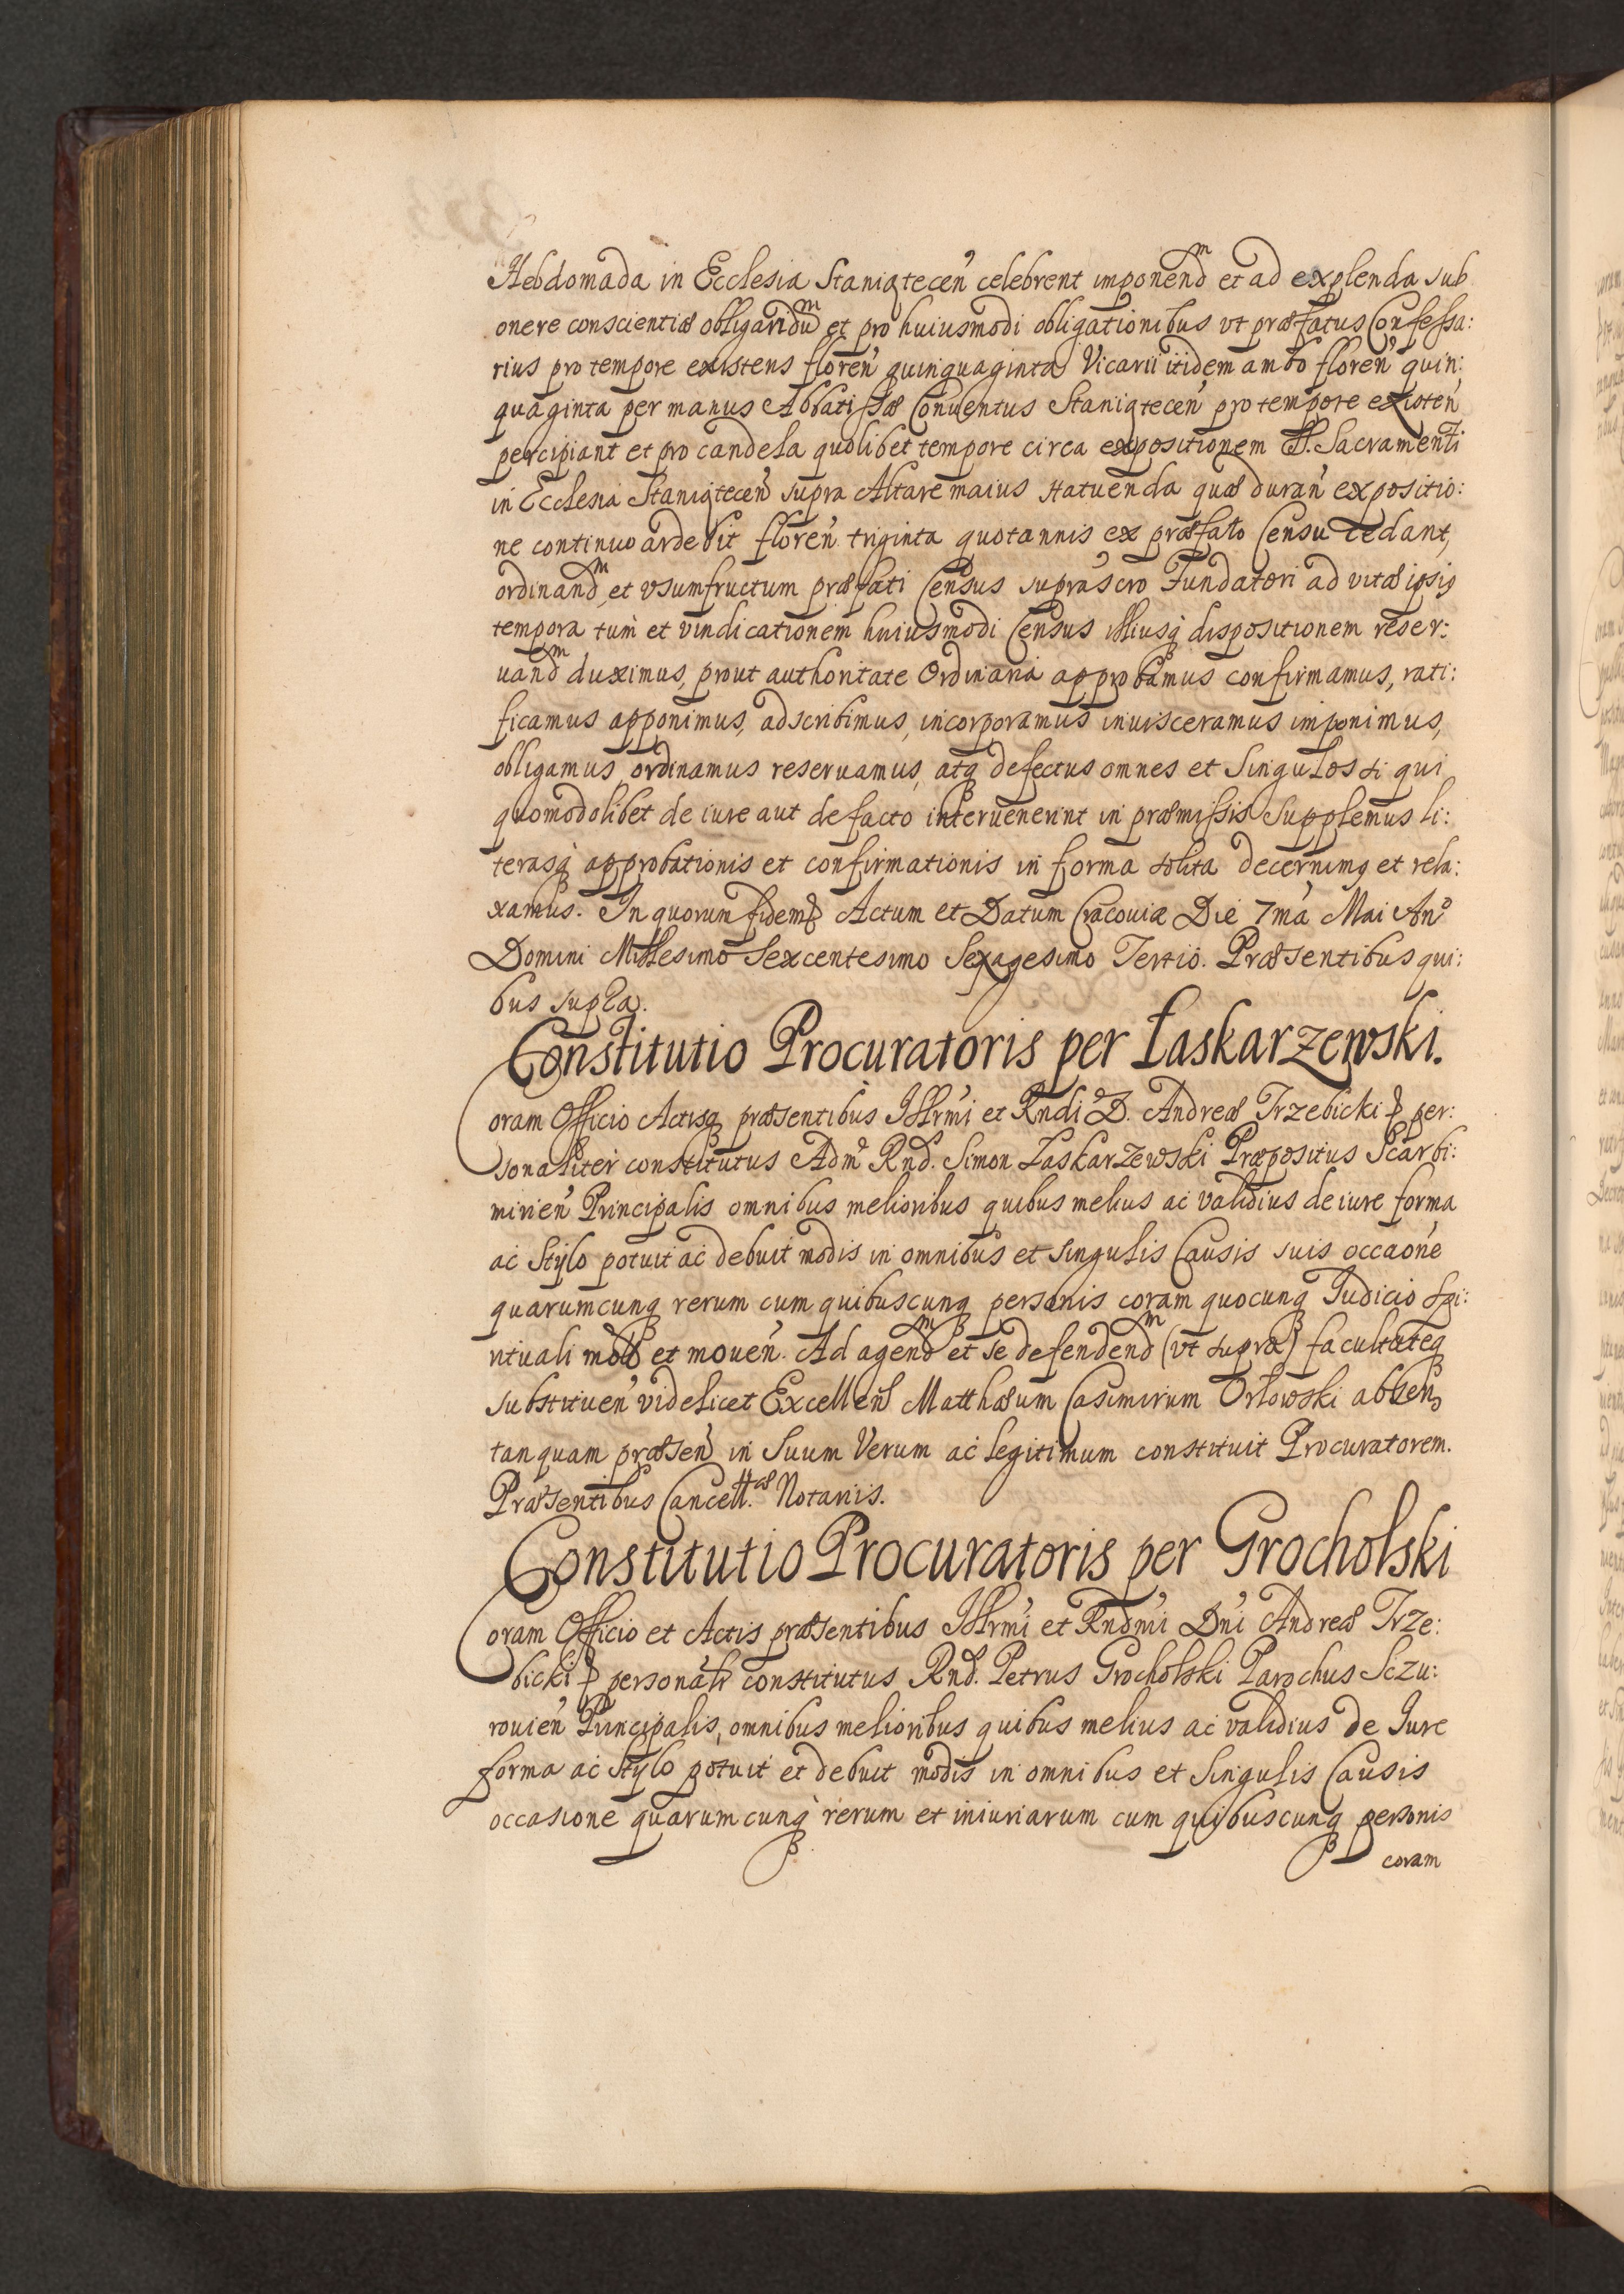 Hebdomada in Ecclesia Staniątecen̄ celebrent imponend͞m et ad explenda sub
onere conscientiæ obligandu͞m et pro huiusmodi obligationibus vt præfatus Confessa:
rius pro tempore existens floren̄ quinquaginta Vicarii itidem ambo floren̄ quin:
quaginta per manus Abbatissæ Conuentus Staniątecen̄ pro tempore existen̄
percipiant et pro candela quolibet tempore circa expositionem SS. Sacramenti
in Ecclesia Staniątecen̄ supra Altare maius statuenda quæ duran̄ expositio:
ne continuo ardebit floren̄ triginta quotannis ex præfato Censu cedant,
ordinand͞m, et vsumfructum præfati Census suprascro Fundatori ad vitæ ipsiꝯ
tempora tum et vindicationem huiusmodi Census illiusq dispositionem reser:
uand͞m duximus, prout authoritate Ordinaria approbamus confirmamus, rati:
ficamus apponimus, adscribimus, incorporamus inuisceramus imponimus,
obligamus, ordinamus reseruamus, atq defectus omnes et Singulos si qui
quomodolibet de iure aut de facto interuenerint in præmissis Supplemus li:
terasq approbationis et confirmationis in forma solita decernimꝯ et rela:
xamus. In quorum fidem ꝑ Actum et Datum Cracouiæ Die 7ma Mai An̊
Domini Millesimo Sexcentesimo Sexagesimo Tertio. Præsentibus qui:
bus supra.
Constitutio Procuratoris per Łaskarzewski.
Coram Officio Actisq præsentibus Illrmi et Rndi D. Andreæ Trzebicki ꝑ per:
sonaliter constitutus Adm̊ Rnd. Simon Łaskarzewski Præpositus Scarbi:
mirien̄ Principalis omnibus melioribus quibus melius ac validius de iure forma
ac Stylo potuit ac debuit modis in omnibus et singulis Causis suis occaōne
quarumcunq rerum cum quibuscunq personis coram quocunq Iudicio Spi:
rituali mot͞s et mouen̄. Ad agend͞m et se defendend͞m (vt supra) facultateq
substituen̄ videlicet Excellen̄ Matthæum Casimirum Orłowski absen͂
tanquam præsen̄ in Suum Verum ac legitimum constituit Procuratorem.
Præsentibus Cancell.æ Notariis.
Constitutio Procuratoris per Grocholski
Coram Officio et Actis præsentibus Illrmi et Rndmi Dni Andreæ Trze:
bicki ꝑ personalr constitutus Rnd. Petrus Grocholski Parochus Sczu:
rouien̄ Principalis, omnibus melioribus quibus melius ac validius de Iure
forma ac Stylo potuit et debuit modis in omnibus et Singulis Causis
occasione quarumcunq rerum et iniuriarum cum quibuscunq personis
coram